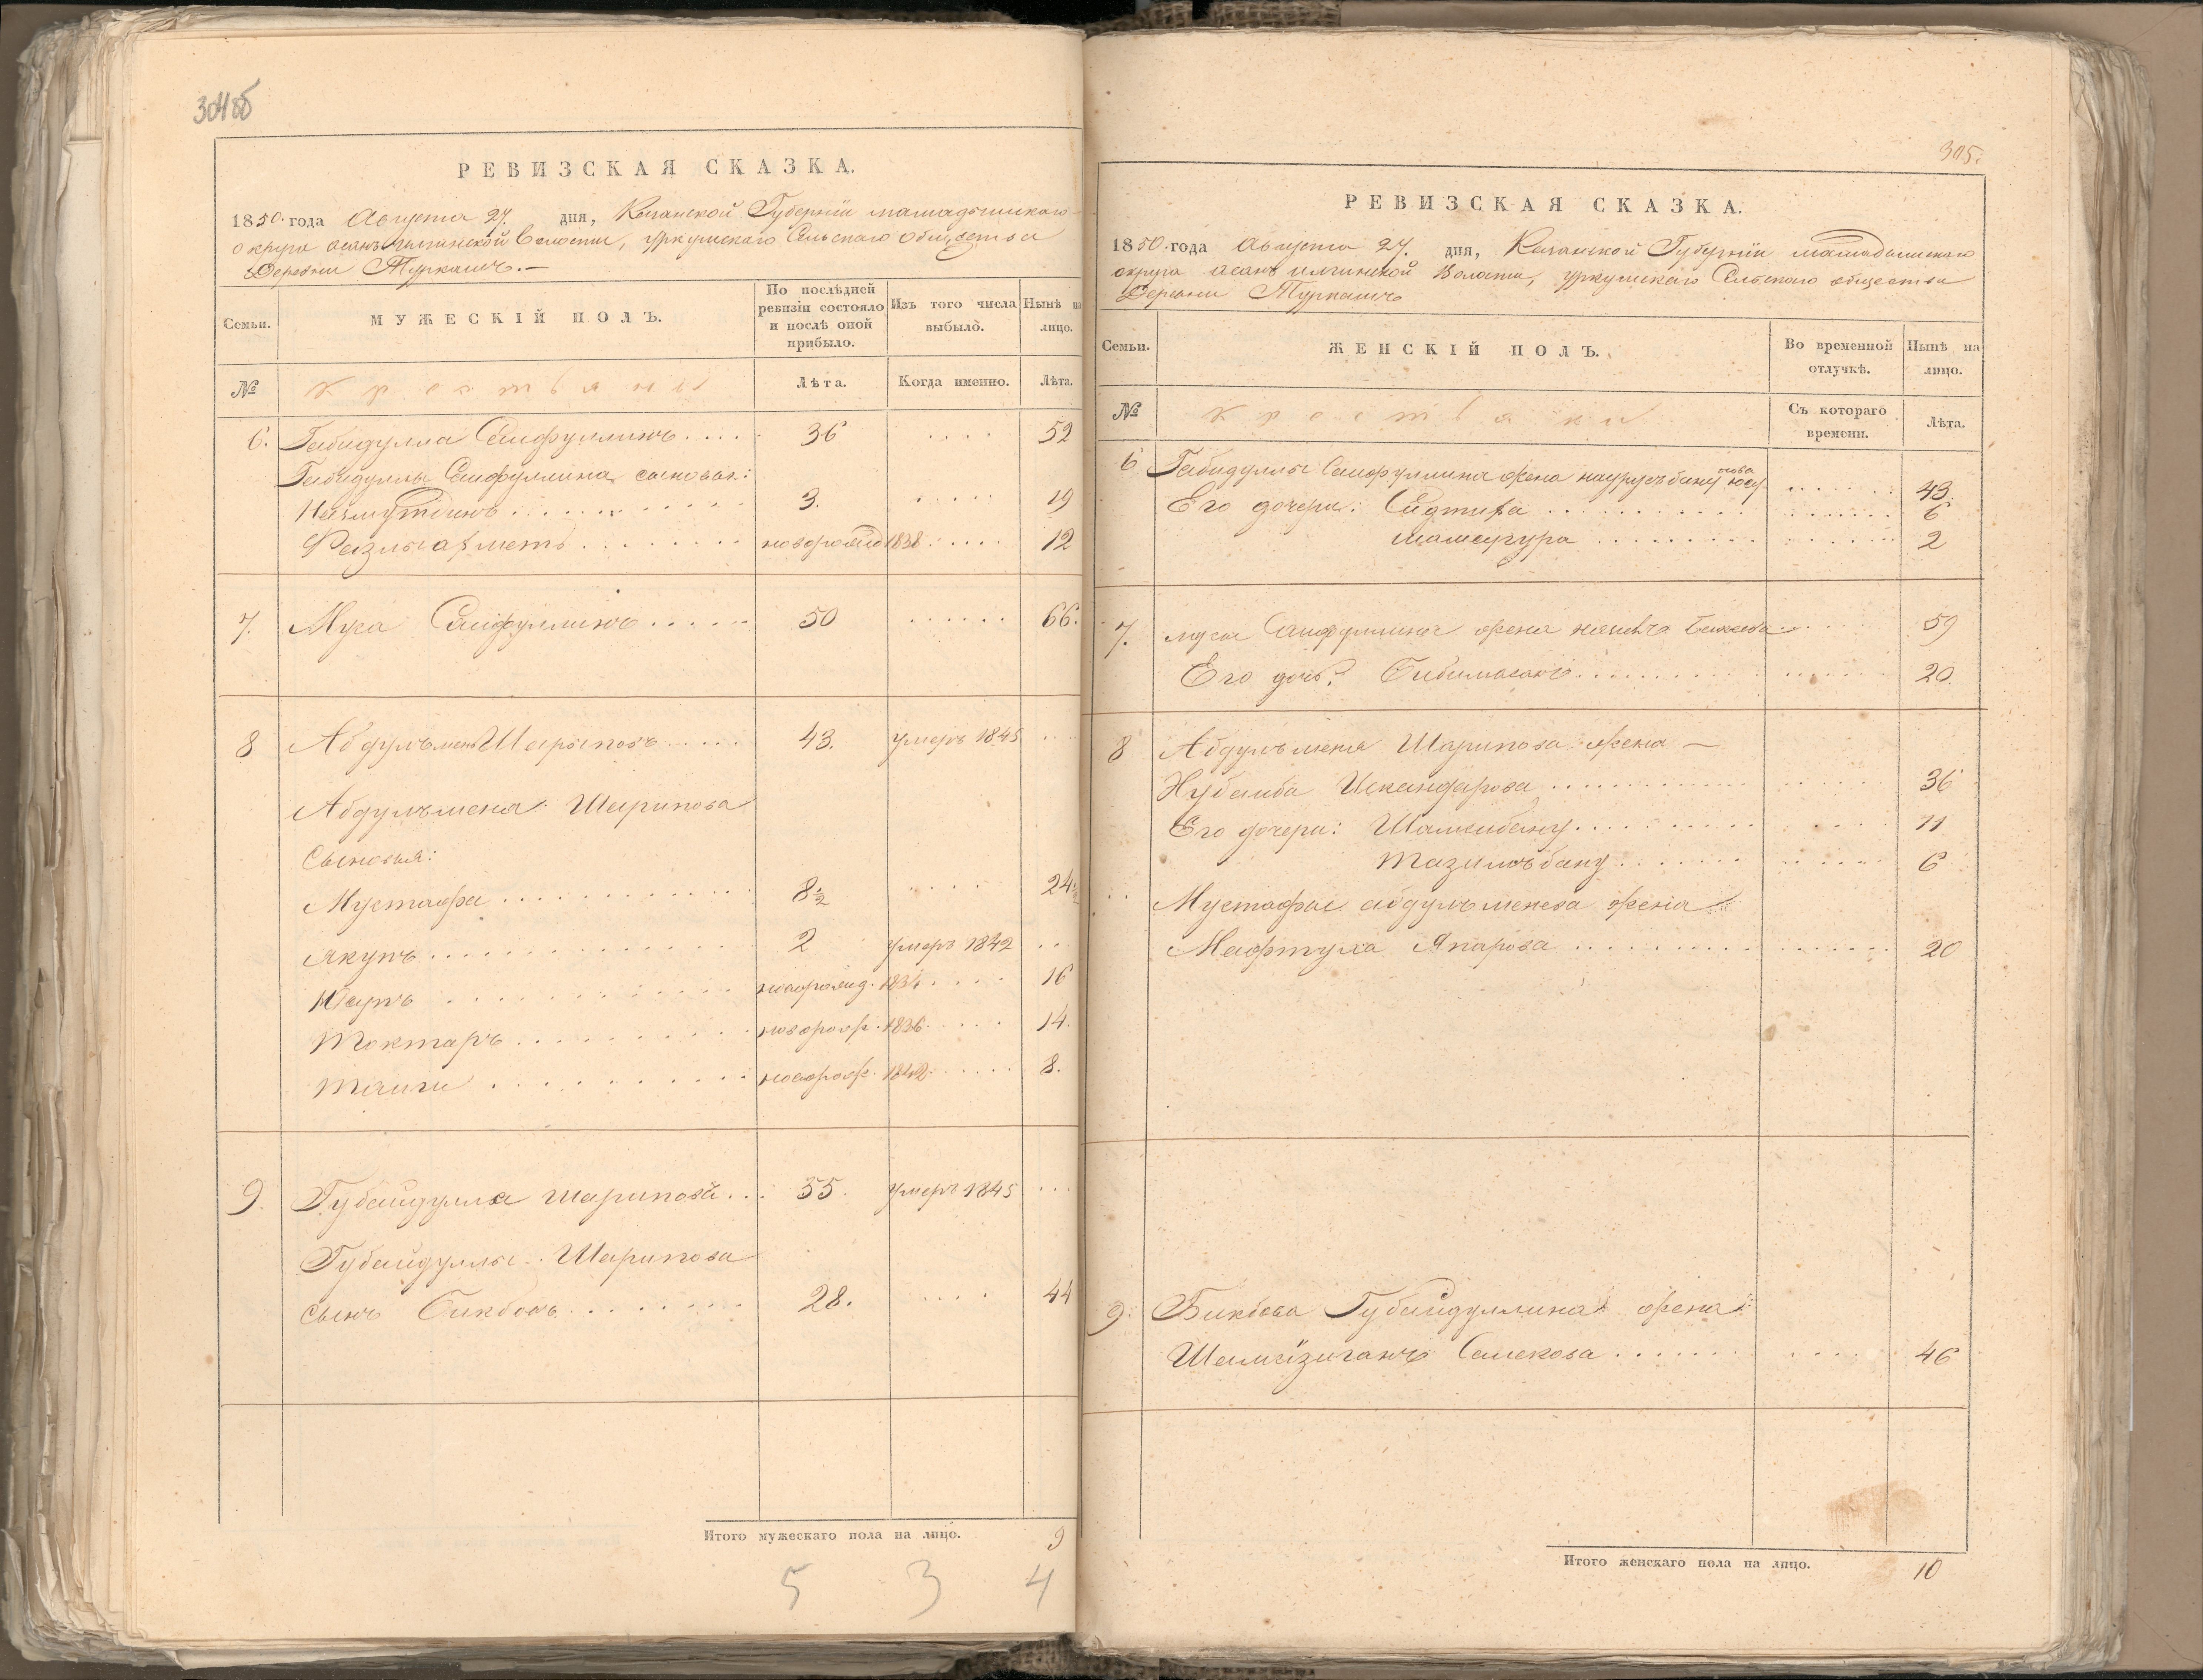 304об
РЕВИЗСКАЯ СКАЗКА.
1850 года Августа 27. дня, Казанской Губерніи мамадышскаго
округа асанъ илгинской Волости, уркушскаго Сельскаго общества
Деревни Туркашъ.—
Семьи.
МУЖЕСКІЙ ПОЛЪ.
По послѣдней ревизіи состояло и послѣ оной прибыло.
Изъ того числа выбыло.
Нынѣ на лицо.
№
крестьяны
Лѣта.
Когда именно.
Лѣта.
6. Габидулла Сайфуллинъ .... 36 .... 52
Габидуллы Сайфуллина сыновья:
Назмутдинъ .......... 3. ..... 19
Фазлыахметъ ........ новорожд 1838 ..... 12
7. Муса Сайфуллинъ ..... 50 ...... 66.
8 Абдулъмень Шарыповъ ..... 43. умеръ 1845 ....
Абдулъмена Шарипова
Сыновья:
Мустафа ............ 8½ .... 24½
Якупъ ............ 2 умеръ 1842 ..
Юсупъ ............ новорожд. 1834 .... 16
Моктаръ .......... новорож. 1836 ..... 14.
............ новорож. 1842 ..... 8.
9. Губайдулла шариповъ ... 55. умеръ 1845 ...
Губайдуллы Шарипова
сынъ Бикбовъ ........ 28. .... 44
Итого мужескаго пола на лицо. 9
5 3 4
305.
РЕВИЗСКАЯ СКАЗКА.
1850 года Августа 27. дня, Казанской Губерніи мамадышскаго
округа асанъ илгинской Волости, уркушскаго Сельскаго общества
Деревни Туркашъ
Семьи.
ЖЕНСКІЙ ПОЛЪ.
Во временной отлучкѣ.
Нынѣ на лицо.
№
крестьянки
Съ котораго времени.
Лѣта.
6 Габидуллы Сайфуллина жена наурузъбану Юсупова ...... 43.
Его дочери: Сидтика ........... ....... 6
Мамдуура ......... ...... 2
7. мусы Сайфуллина жена ...... 59
Его дочь: Бибимасанъ .......... ...... 20.
8 Абдулъмена Шарипова жена —
Хубайба Искандарова ............ ..... 36
Его дочери: Шамсибану .......... ..... 11
Мазилъбану ....... ..... 6
Мустафы абдулъменева жена
Мафтуха Япарова ........... ....... 20
9. Бикбова Губайдуллина жена
Шамсизиганъ Самекова ....... ..... 46
Итого женскаго пола на лицо. 10